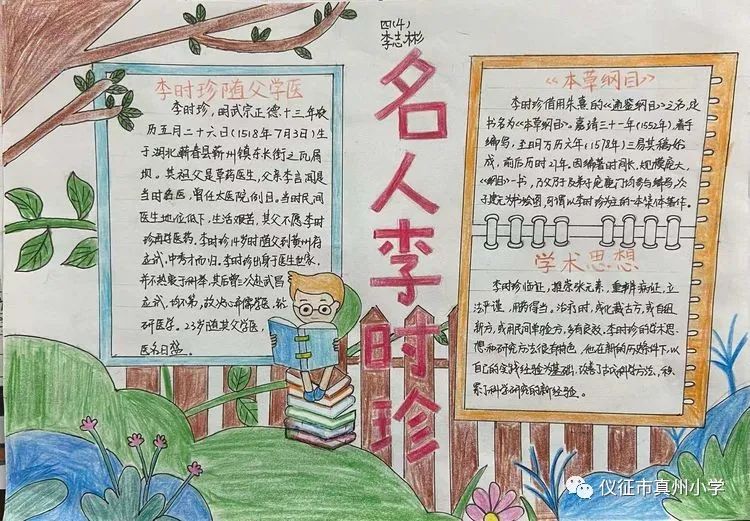 四(4)
李志彬
名人李时珍
李时珍随父学医
李时珍,明武宗正德十三年农
历五月二十六日(1518年7月3日)生
于湖北蕲春县蕲州镇东长街之瓦屑
坝。其祖父是草药医生,父亲李言闻是
当时名医,曾任太医院例目。当时民间
医生地位低下,生活艰苦,其父不愿李时
珍再学医药。李时珍14岁时随父到黄州府
应试,中秀才而归。李时珍出身于医生世家,
并不热衷于科举,其后曾三次赴武昌
应试,均不第,故决心弃儒学医,钻
研医学。23岁随其父学医,
医名日盛。
《本草纲目》
李时珍借用朱熹的《通鉴纲目》之名,定
书名为《本草纲目》。嘉靖三十一年(1552年),着手
编写,至明万历六年(1578年)三易其稿始
成,前后历时27年。因编著时间长,规模庞大,
《纲目》一书,
学术思想
李时珍临证,推崇张元素,重辨病证,立
法严谨,用药得当。治病时,或化裁古方,或自组
新方,或用民间单验方,多有良效。李时珍的学术思
想和研究方法很有特色,他在新的历史条件下,以
自己的实践经验为基础,改善了古代科学方法,积
累了科学研究的新经验。
仪征市真州小学